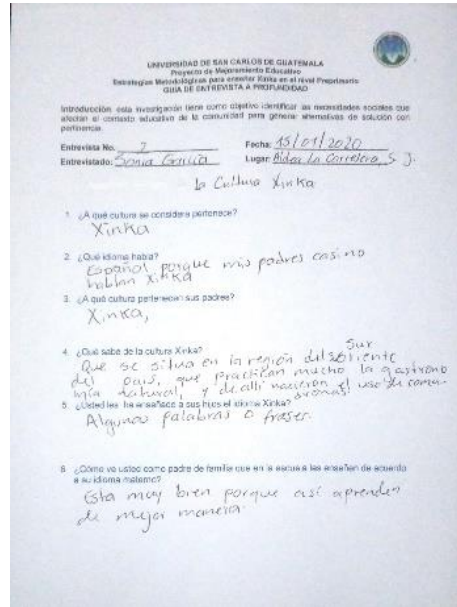 UNIVERSIDAD DE SAN CARLOS DE GUATEMALA
Proyecto de Mejoramiento Educativo
Estrategias Metodológicas para enseñar Xinka en el nivel Preprimario
GUÍA DE ENTREVISTA A PROFUNDIDAD
Introducción: esta investigación tiene como objetivo identificar las necesidades sociales que
afectan el contexto educativo de la comunidad para generar alternativas de solución con
pertinencia.
Entrevista No. 2 Fecha: 15/01/2020
Entrevistado: Sonia García Lugar: Aldea La Corredera, S. J.
la Cultura Xinka
1. ¿A qué cultura se considera pertenece?
Xinka
2. ¿Qué idioma habla?
Español porque mis padres casi no
hablan Xinka
3. ¿A qué cultura pertenecen sus padres?
Xinka,
4. ¿Qué sabe de la cultura Xinka?
Sur
Que se situa en la región del oriente
del pais, que practican mucho la gastrono
mía natural, y de alli nacieron el uso de
5. ¿Usted les ha enseñado a sus hijos el idioma Xinka?
Algunas palabras o frases.
6. ¿Cómo ve usted como padre de familia que en la escuela les enseñen de acuerdo
a su idioma materno?
Esta muy bien porque así aprenden
de mejor manera